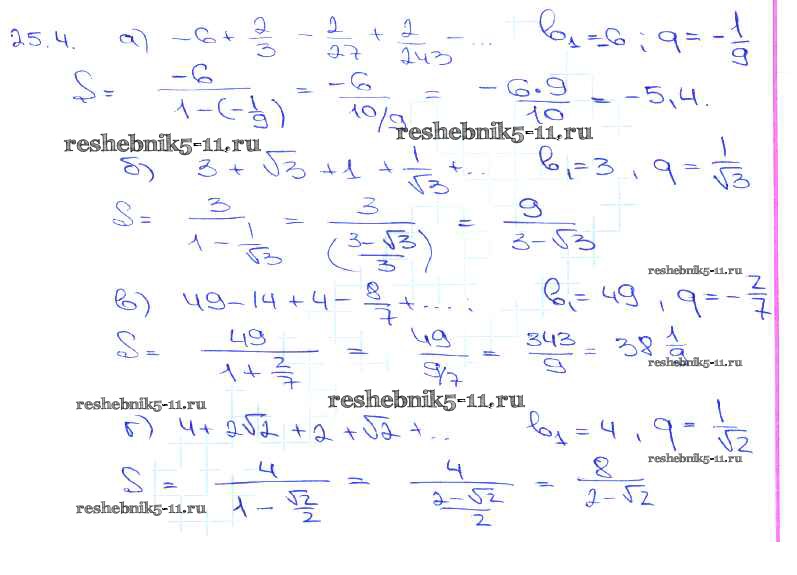 25.4. а) -6 + 2/3 - 2/27 + 2/243 - ... b₁ = -6 ; q = -1/9
S = -6/(1-(-1/9)) = -6/(10/9) = -6·9/10 = -5,4.
reshebnik5-11.ru reshebnik5-11.ru
б) 3 + √3 + 1 + 1/√3 + ... b₁ = 3 , q = 1/√3
S = 3/(1 - 1/√3) = 3/((3-√3)/3) = 9/(3-√3)
reshebnik5-11.ru
в) 49 - 14 + 4 - 8/7 + .... ; b₁ = 49 , q = -2/7
S = 49/(1 + 2/7) = 49/(9/7) = 343/9 = 38 1/9
reshebnik5-11.ru
reshebnik5-11.ru reshebnik5-11.ru
б) 4 + 2√2 + 2 + √2 + ... b₁ = 4 , q = 1/√2
reshebnik5-11.ru
S = 4/(1 - √2/2) = 4/((2-√2)/2) = 8/(2-√2)
reshebnik5-11.ru